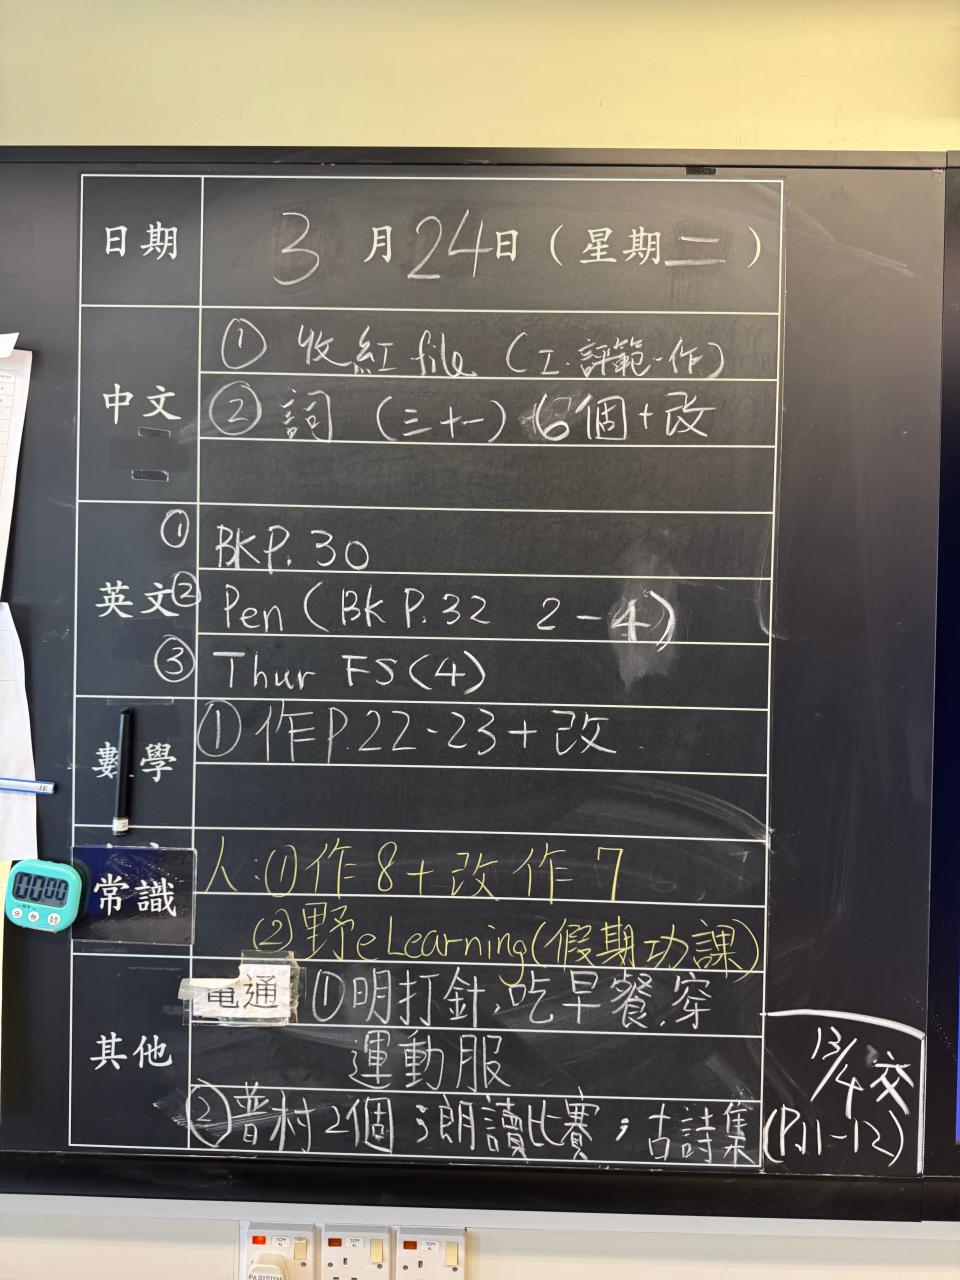 日期 3月24日(星期二)
中文
① 收紅file (工.評範-作)
② 詞 (三十一) 6個+改
英文
① BK P.30
② Pen (BK P.32 2-4)
③ Thur FS(4)
數學
① 作P.22-23+改
常識
人:①作8+改 作7
②野eLearning(假期功課)
其他
電通 ①明打針,吃早餐,穿
運動服
②普村2個;朗讀比賽;古詩集(P.11-12)
13/4交
00:00